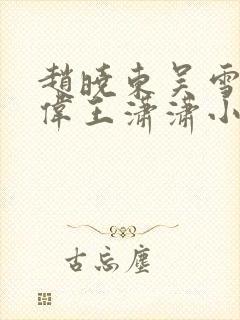 趙曉東吴雪
偉王瀟瀟小
古忘塵